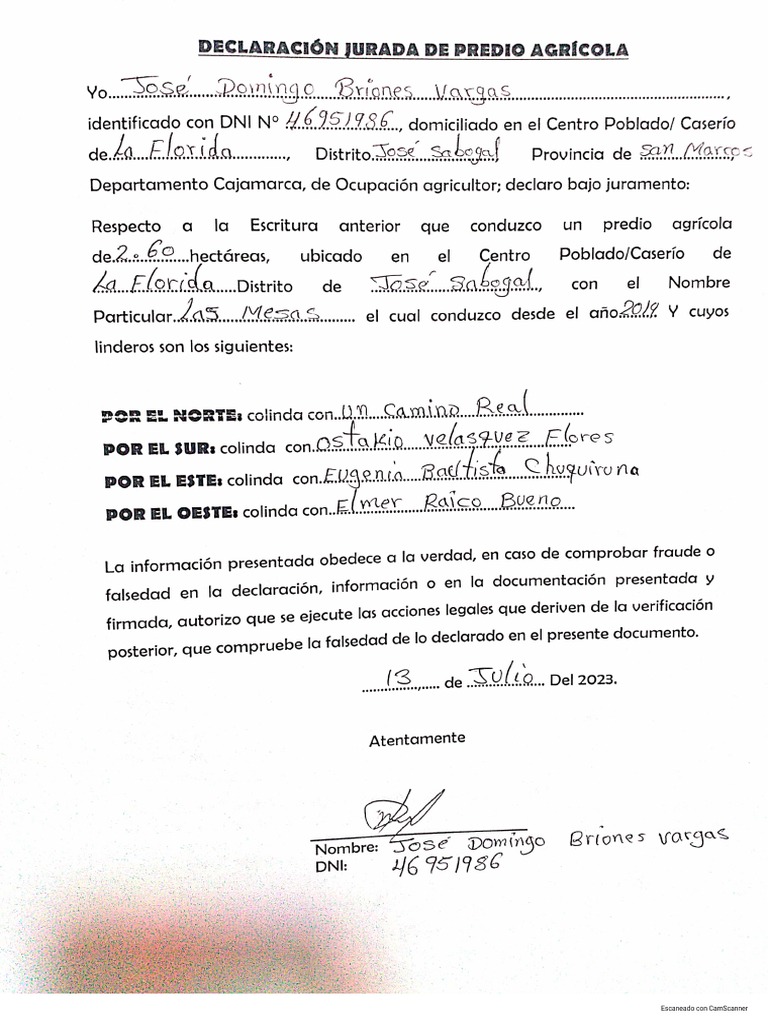 DECLARACIÓN JURADA DE PREDIO AGRÍCOLA
Yo José Domingo Briones Vargas,
identificado con DNI N° 46951986, domiciliado en el Centro Poblado/ Caserío
de La Florida, Distrito José Sabogal Provincia de San Marcos
Departamento Cajamarca, de Ocupación agricultor; declaro bajo juramento:
Respecto a la Escritura anterior que conduzco un predio agrícola
de 2.60 hectáreas, ubicado en el Centro Poblado/Caserío de
La Florida Distrito de José Sabogal, con el Nombre
Particular Las Mesas el cual conduzco desde el año 2019 Y cuyos
linderos son los siguientes:
POR EL NORTE: colinda con un Camino Real
POR EL SUR: colinda con Ostakio Velasquez Flores
POR EL ESTE: colinda con Eugenia Bautista Chuquiruna
POR EL OESTE: colinda con Elmer Raico Bueno
La información presentada obedece a la verdad, en caso de comprobar fraude o
falsedad en la declaración, información o en la documentación presentada y
firmada, autorizo que se ejecute las acciones legales que deriven de la verificación
posterior, que compruebe la falsedad de lo declarado en el presente documento.
13 de Julio Del 2023.
Atentamente
Nombre: José Domingo Briones Vargas
DNI: 46951986
Escaneado con CamScanner